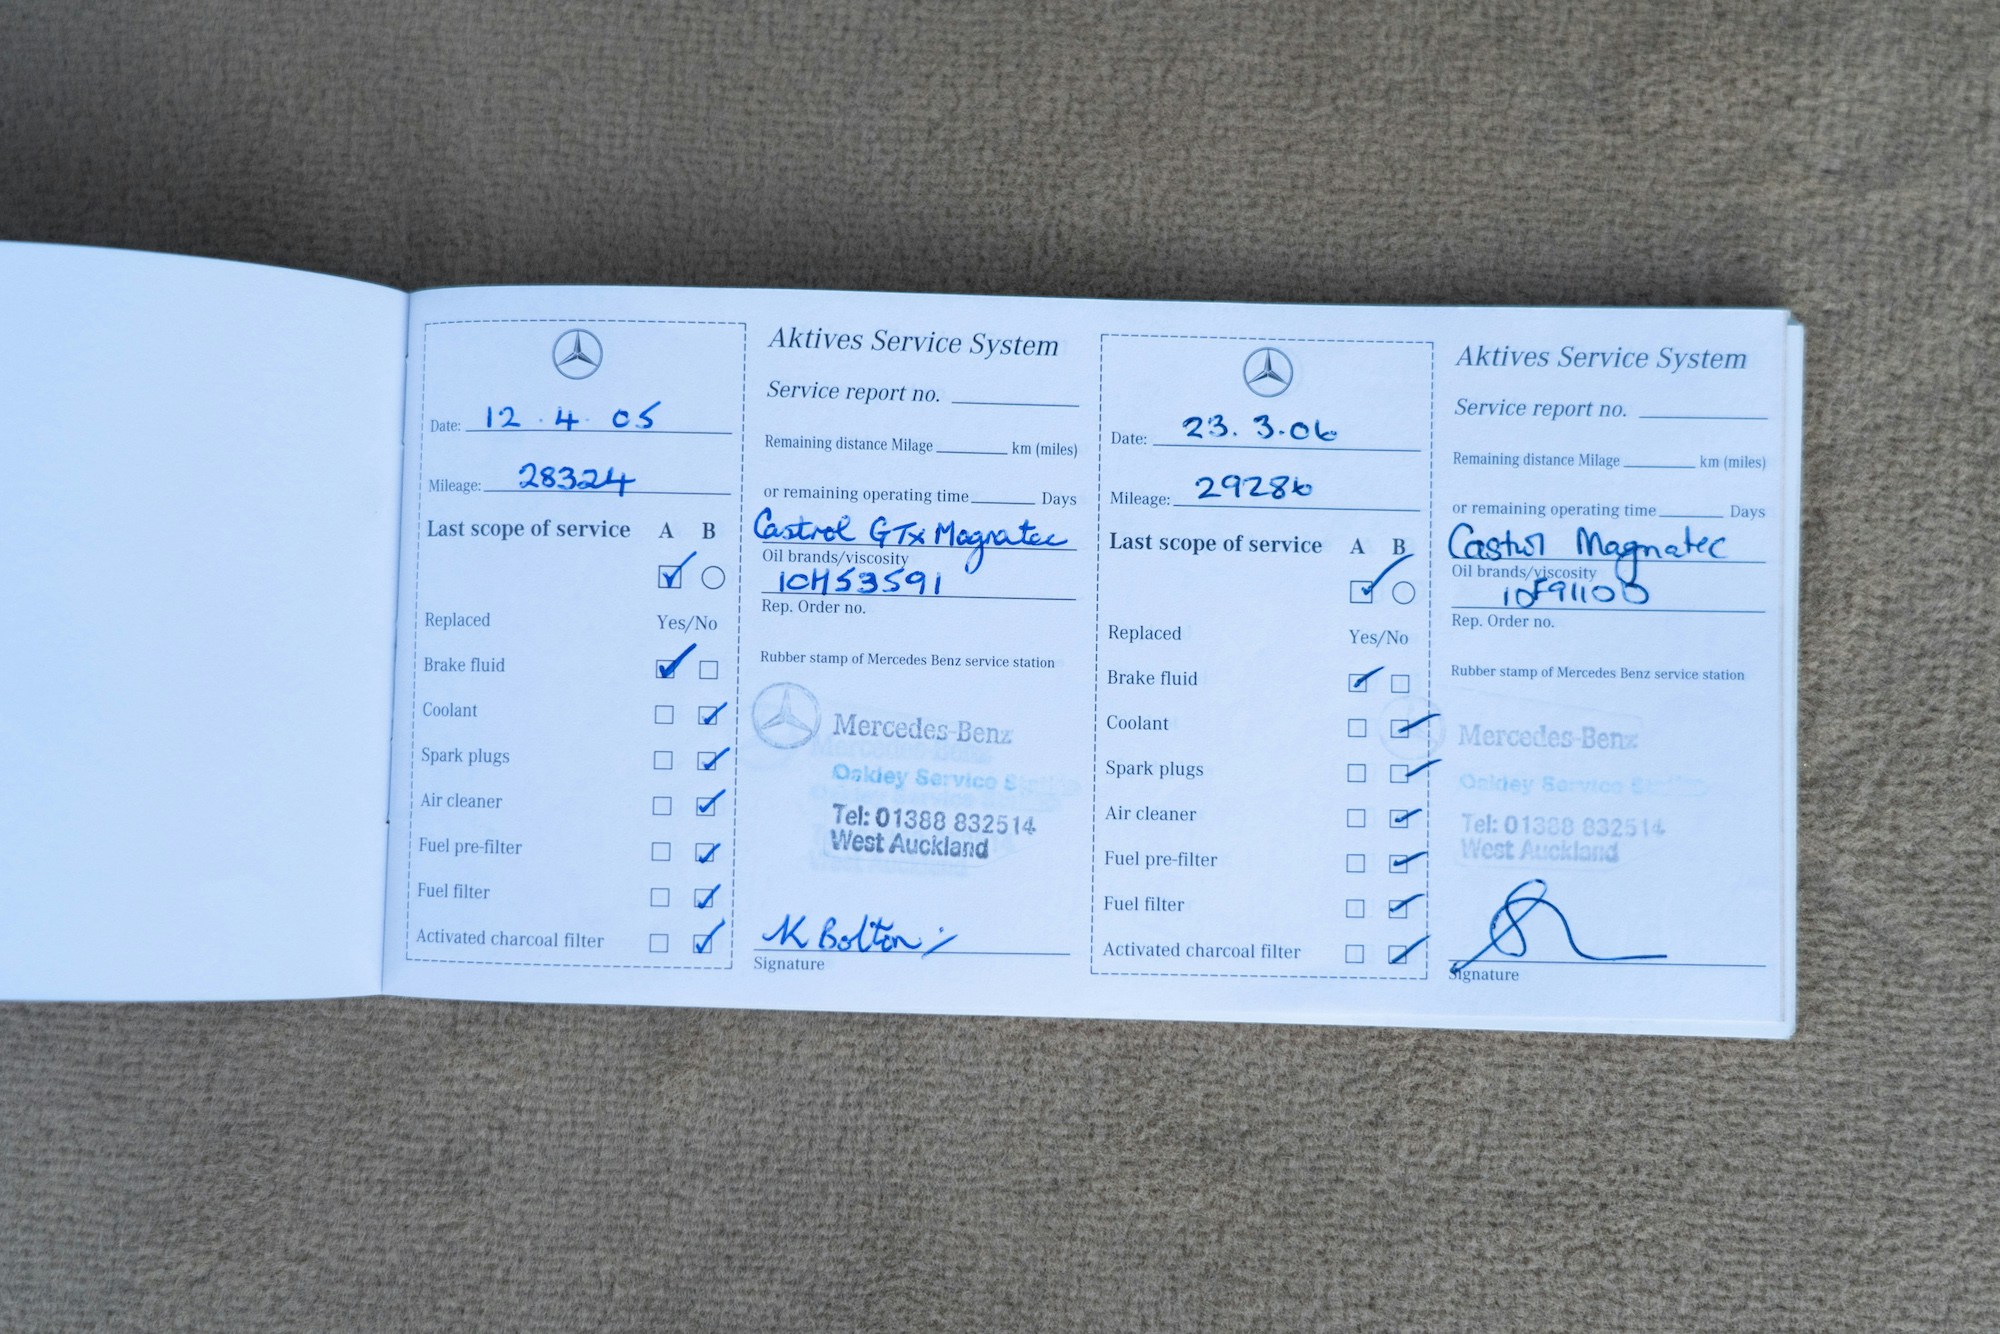 Date: 12.4.05
Mileage: 28324
Last scope of service A B
Replaced Yes/No
Brake fluid
Coolant
Spark plugs
Air cleaner
Fuel pre-filter
Fuel filter
Activated charcoal filter
Aktives Service System
Service report no.
Remaining distance Milage km (miles)
or remaining operating time Days
Castrol GTx Magnatec
Oil brands/viscosity
10H53591
Rep. Order no.
Rubber stamp of Mercedes Benz service station
Mercedes-Benz
Oakley Service Station
Tel: 01388 832514
West Auckland
K Bolton
Signature
Date: 23.3.06
Mileage: 29286
Last scope of service A B
Replaced Yes/No
Brake fluid
Coolant
Spark plugs
Air cleaner
Fuel pre-filter
Fuel filter
Activated charcoal filter
Aktives Service System
Service report no.
Remaining distance Milage km (miles)
or remaining operating time Days
Castrol Magnatec
Oil brands/viscosity
Rep. Order no.
Rubber stamp of Mercedes Benz service station
Mercedes-Benz
Oakley Service Station
Tel: 01388 832514
West Auckland
Signature